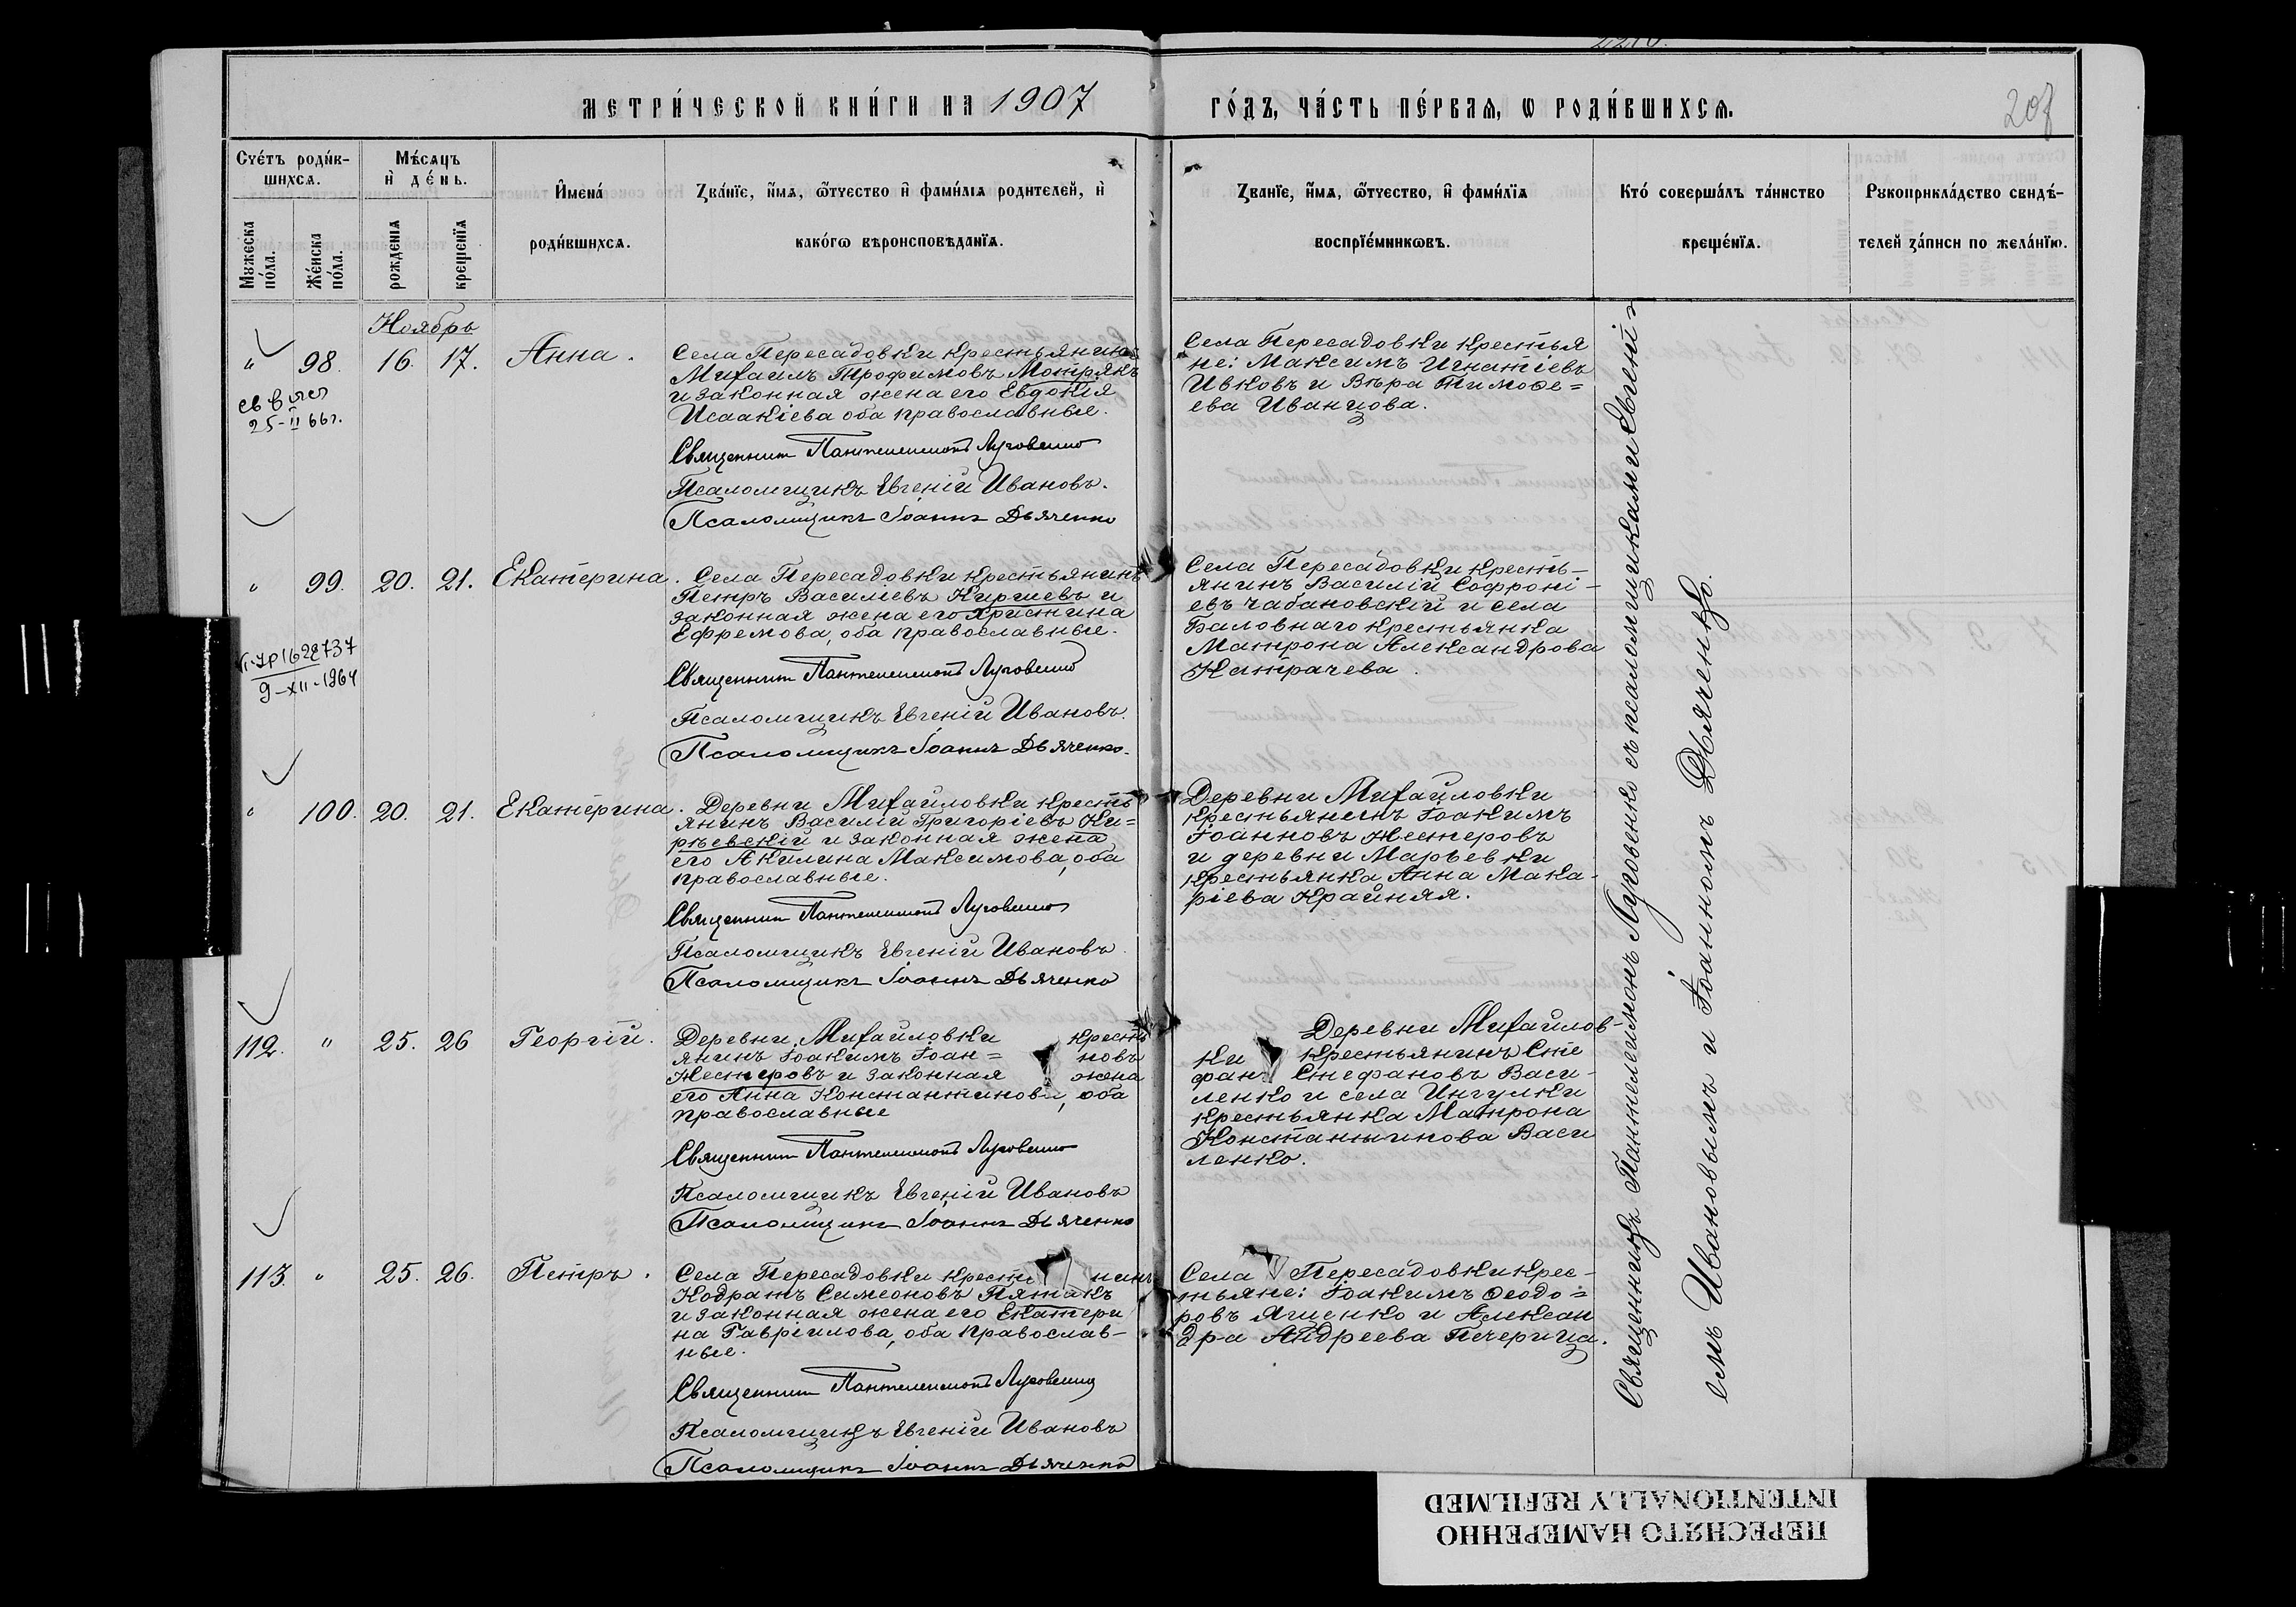 МЕТРИ́ЧЕСКОЙ КНИ́ГИ НА 1907
ГО́ДЪ, ЧА́СТЬ ПЕ́РВАѦ, Ѡ РОДИ́ВШИХСѦ.
207
Сче́тъ роди́в-
шихсѧ.
Мꙋжеска
по́ла.
Же́нска
по́ла.
Мѣ́сѧцъ
и҆ де́нь.
рожденїѧ
крещенїѧ
И҆мена́
роди́вшихсѧ.
Зва́нїе, и҆́мѧ, ѻ҆́тчество и҆ фами́лїѧ родителей, и҆
како́гѡ вѣроисповѣданїѧ.
Зва́нїе, и҆́мѧ, ѻ҆́тчество, и҆ фами́лїѧ
воспрїе́мникѡвъ.
Кто́ соверша́лъ та́инство
креще́нїѧ.
Рꙋкоприкла́дство свидѣ́-
телей за́писи по жела́нїю.
Ноябрь
" 98. 16. 17. Анна.
25-II 66г.
Села Пересадовки крестьянинъ
Михаилъ Трофимовъ Мотрякъ
и законная жена его Евдокія
Исаакіева оба православные.
Священник Пантелеимонъ Луговенко
Псаломщикъ Евгеній Ивановъ.
Псаломщикъ Іоаннъ Дьяченко
Села Пересадовки крестья
не: Максимъ Игнатіевъ
Ивковъ и Вѣра Тимоѳе=
ева Иванцова.
" 99. 20. 21. Екатерина.
9-XII-1964
Села Пересадовки крестьянинъ
Петръ Василіевъ Киричевъ и
законная жена его Христина
Ефремова, оба православные.
Священник Пантелеимонъ Луговенко
Псаломщикъ Евгеній Ивановъ.
Псаломщикъ Іоаннъ Дьяченко.
Села Пересадовки кресть-
янинъ Василій Софроні-
евъ Чабановскій и села
Баловнаго крестьянка
Матрона Александрова
Катрачева.
" 100. 20. 21. Екатерина.
Деревни Михайловки кресть
янинъ Василій Григоріевъ Ки=
рѣевскій и законная жена
его Акилина Максимова, оба
православные.
Священник Пантелеимонъ Луговенко
Псаломщикъ Евгеній Ивановъ
Псаломщикъ Іоаннъ Дьяченко
Деревни Михайловки
крестьянинъ Іоакимъ
Іоанновъ Нестеровъ
и деревни Марьевки
крестьянка Анна Мака-
ріева Крайняя.
112. " 25. 26 Георгій.
Деревни Михайловки кресть
янинъ Іоакимъ Іоан= новъ
Нестеровъ и законная жена
его Анна Константинова, оба
православные
Священник Пантелеимонъ Луговенко
Псаломщикъ Евгеній Ивановъ
Псаломщикъ Іоаннъ Дьяченко
Деревни Михайлов-
ки крестьянинъ Сте
фанъ Стефановъ Васи-
ленко и села Ингулки
крестьянка Матрона
Константинова Васи
ленко.
113. " 25. 26. Петръ.
Села Пересадовки кресть нинъ
Кодратъ Симеоновъ Пятакъ
и законная жена его Екатери
на Гавріилова, оба православ-
ные.
Священник Пантелеимонъ Луговенко
Псаломщикъ Евгеній Ивановъ
Псаломщикъ Іоаннъ Дьяченко
Села Пересадовки крес-
тьяне: Іоакимъ Ѳеодо=
ровъ Ященко и Алексан
дра Андреева Печерица.
Священникъ Пантелеимонъ Луговенко съ псаломщиками Евгені-
емъ Ивановымъ и Іоанномъ Дьяченко.
ПЕРЕСНЯТО НАМЕРЕННО
INTENTIONALLY REFILMED